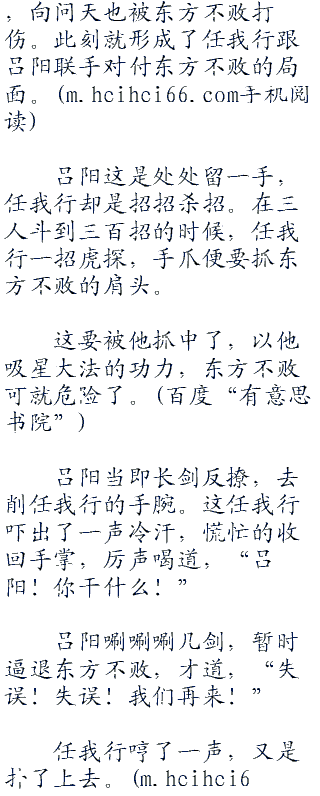 ，向问天也被东方不败打
伤。此刻就形成了任我行跟
吕阳联手对付东方不败的局
面。(m.hcihci66.com手机阅
读)
吕阳这是处处留一手，
任我行却是招招杀招。在三
人斗到三百招的时候，任我
行一招虎探，手爪便要抓东
方不败的肩头。
这要被他抓中了，以他
吸星大法的功力，东方不败
可就危险了。(百度“有意思
书院”)
吕阳当即长剑反撩，去
削任我行的手腕。这任我行
吓出了一声冷汗，慌忙的收
回手掌，厉声喝道，“吕
阳！你干什么！”
吕阳唰唰唰几剑，暂时
逼退东方不败，才道，“失
误！失误！我们再来！”
任我行哼了一声，又是
扑了上去。(m.hcihci6